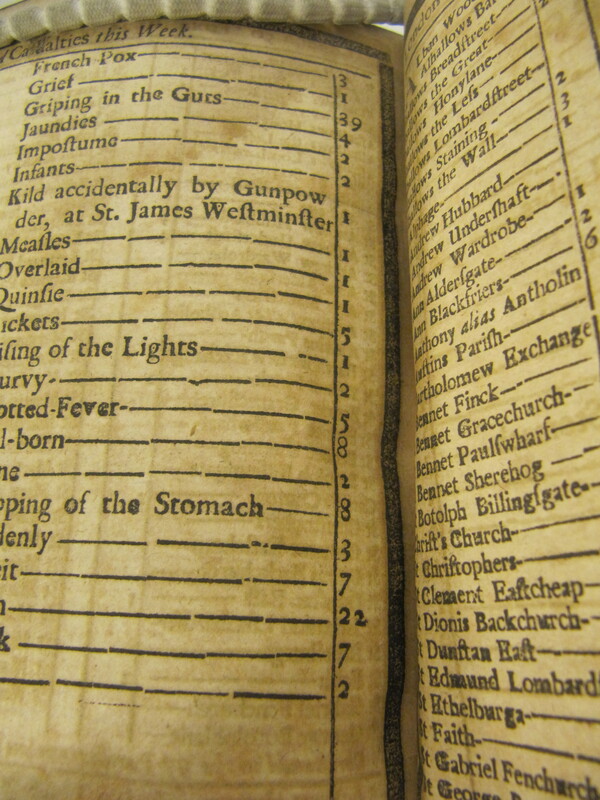 Casualties this Week.
French Pox 3
Grief 1
Griping in the Guts 39
Jaundies 4
Impoſtume 2
Infants 2
Kild accidentally by Gunpow
der, at St. James Weſtminſter 1
Meaſles 1
Overlaid 1
Quinſie 1
ickets 5
iſing of the Lights 1
urvy 2
otted-Fever 5
l-born 8
ne 2
pping of the Stomach 8
denly 3
it 7
n 22
k 7
2
lban Woo
Alhallows Ba
llows Breadſtreet
llows the Great
llows Honylane
llows the Leſs 2
llows Lombardſtreet 3
llows Staining 1
llows the Wall
lphage
Andrew Hubbard
Andrew Underſhaft 1
Andrew Wardrobe 2
Ann Alderſgate 6
Ann Blackfriers
nthony alias Antholin
uſtins Pariſh
artholomew Exchange
Bennet Finck
Bennet Gracechurch
Bennet Paulſwharf
Bennet Sherehog
Botolph Billingſgate
hriſt's Church
t Chriſtophers
t Clement Eaſtcheap
t Dionis Backchurch
t Dunſtan Eaſt
t Edmund Lombard
St Ethelburga
St Faith
St Gabriel Fenchurch
St George